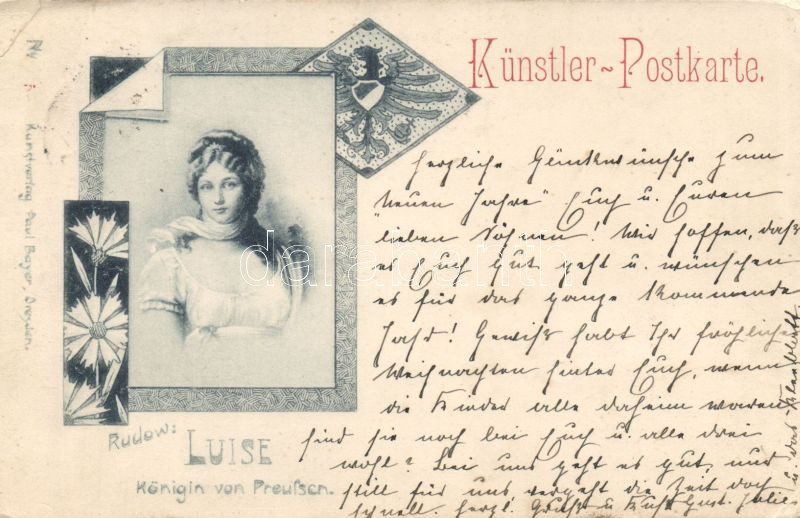 Künstler~Postkarte.
Herzliche Glückwünsche zum
neuen Jahre Euch u. Euren
lieben Söhnen! Wir hoffen, daß
es Euch gut geht u. wünschen
es für das ganze kommende
Jahr! Gewiß habt Ihr fröhliche
Weihnachten hinter Euch, wenn
die Kinder alle daheim waren,
sind sie noch bei Euch u. alle drei
wohl? Bei uns geht es gut, nur
still für uns vergeht die Zeit doch
schnell. Herzl. Grüße u. Kuß
u. das
Rudow:
LUISE
Königin von Preußen.
Kunstverlag Paul Bayer Dresden.
darabanth